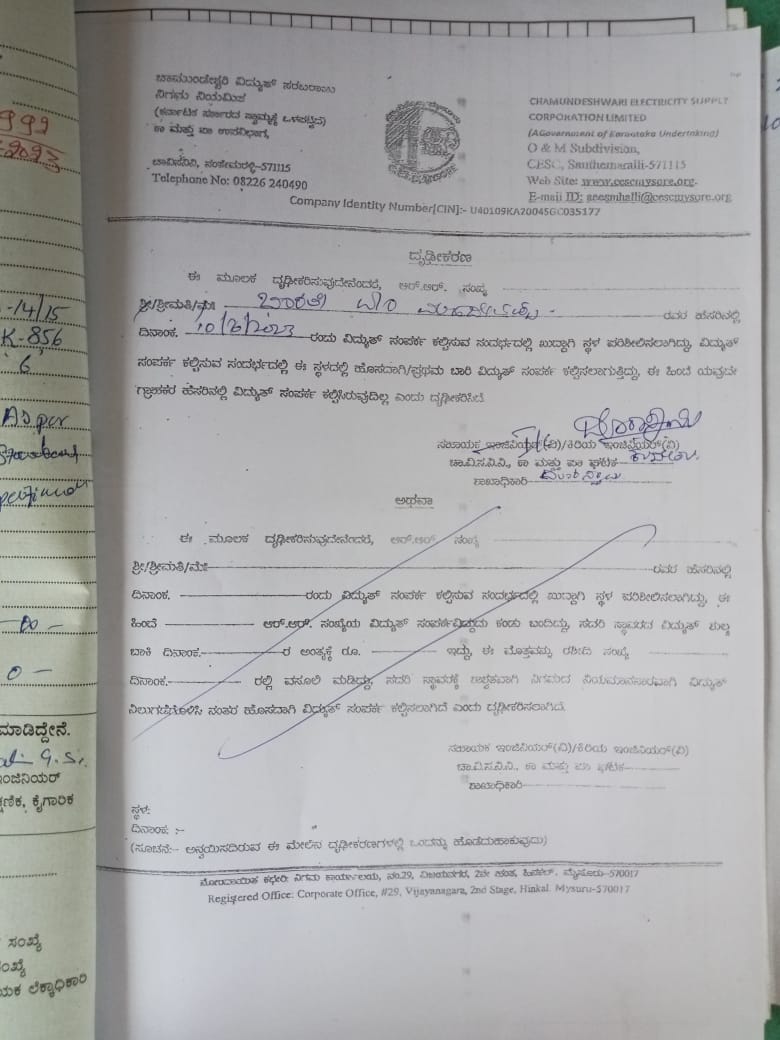 999
2023
-14/15
K-856
6
As per
0-
ಮಾಡಿದ್ದೇನೆ.
ಇಂಜಿನಿಯರ್
ಕೈಗಾರಿಕ
ಸಂಖ್ಯೆ
ಲೆಕ್ಕಾಧಿಕಾರಿ
ಚಾಮುಂಡೇಶ್ವರಿ ವಿದ್ಯುತ್ ಸರಬರಾಜು
ನಿಗಮ ನಿಯಮಿತ
(ಕರ್ನಾಟಕ ಸರ್ಕಾರದ ಸ್ವಾಮ್ಯಕ್ಕೆ ಒಳಪಟ್ಟಿದೆ)
ಕಾ ಮತ್ತು ಪಾ ಉಪವಿಭಾಗ,
ಚಾವಿಸನಿನಿ, ಸಂತೇಮರಳ್ಳಿ-571115
Telephone No: 08226 240490
CHAMUNDESHWARI ELECTRICITY SUPPLY
CORPORATION LIMITED
(AGovernment of Karnataka Undertaking)
O & M Subdivision,
CESC, Santhemaralli-571115
Web Site: www.cescmysore.org.
E-mail ID: aeesmhalli@cescmysore.org
Company Identity Number[CIN]:- U40109KA20045GC035177
ದೃಢೀಕರಣ
ಈ ಮೂಲಕ ದೃಢೀಕರಿಸುವುದೇನೆಂದರೆ, ಆರ್.ಆರ್. ಸಂಖ್ಯೆ
ಶ್ರೀ/ಶ್ರೀಮತಿ/ಮೆ: ರವರ ಹೆಸರಿನಲ್ಲಿ
ದಿನಾಂಕ. 10/2/2023 ರಂದು ವಿದ್ಯುತ್ ಸಂಪರ್ಕ ಕಲ್ಪಿಸುವ ಸಂದರ್ಭದಲ್ಲಿ ಖುದ್ದಾಗಿ ಸ್ಥಳ ಪರಿಶೀಲಿಸಲಾಗಿದ್ದು, ವಿದ್ಯುತ್
ಸಂಪರ್ಕ ಕಲ್ಪಿಸುವ ಸಂದರ್ಭದಲ್ಲಿ ಈ ಸ್ಥಳದಲ್ಲಿ ಹೊಸದಾಗಿ/ಪ್ರಥಮ ಬಾರಿ ವಿದ್ಯುತ್ ಸಂಪರ್ಕ ಕಲ್ಪಿಸಲಾಗುತ್ತಿದ್ದು, ಈ ಹಿಂದೆ ಯಾವುದೇ
ಗ್ರಾಹಕರ ಹೆಸರಿನಲ್ಲಿ ವಿದ್ಯುತ್ ಸಂಪರ್ಕ ಕಲ್ಪಿಸಿರುವುದಿಲ್ಲ ಎಂದು ದೃಢೀಕರಿಸಿದೆ.
ಸಹಾಯಕ ಇಂಜಿನಿಯರ್(ವಿ)/ಕಿರಿಯ ಇಂಜಿನಿಯರ್(ವಿ)
ಚಾ.ವಿ.ಸ.ನಿ.ನಿ., ಕಾ ಮತ್ತು ಪಾ ಘಟಕ
ಶಾಖಾಧಿಕಾರಿ
ಅಥವಾ
ಈ ಮೂಲಕ ದೃಢೀಕರಿಸುವುದೇನೆಂದರೆ, ಆರ್.ಆರ್. ಸಂಖ್ಯೆ
ಶ್ರೀ/ಶ್ರೀಮತಿ/ಮೆ: ರವರ ಹೆಸರಿನಲ್ಲಿ
ದಿನಾಂಕ. ರಂದು ವಿದ್ಯುತ್ ಸಂಪರ್ಕ ಕಲ್ಪಿಸುವ ಸಂದರ್ಭದಲ್ಲಿ ಖುದ್ದಾಗಿ ಸ್ಥಳ ಪರಿಶೀಲಿಸಲಾಗಿದ್ದು, ಈ
ಹಿಂದೆ ಆರ್.ಆರ್. ಸಂಖ್ಯೆಯ ವಿದ್ಯುತ್ ಸಂಪರ್ಕವಿದ್ದುದು ಕಂಡು ಬಂದಿದ್ದು, ಸದರಿ ಸ್ಥಾವರದ ವಿದ್ಯುತ್ ಶುಲ್ಕ
ಬಾಕಿ ದಿನಾಂಕ. ರ ಅಂತ್ಯಕ್ಕೆ ರೂ. ಇದ್ದು, ಈ ಮೊತ್ತವನ್ನು ರಶೀದಿ ಸಂಖ್ಯೆ
ದಿನಾಂಕ. ರಲ್ಲಿ ವಸೂಲಿ ಮಾಡಿದ್ದು, ಸದರಿ ಸ್ಥಾವರಕ್ಕೆ ಶಾಶ್ವತವಾಗಿ ನಿಗಮದ ನಿಯಮಾನುಸಾರವಾಗಿ ವಿದ್ಯುತ್
ನಿಲುಗಡೆಗೊಳಿಸಿ ನಂತರ ಹೊಸದಾಗಿ ವಿದ್ಯುತ್ ಸಂಪರ್ಕ ಕಲ್ಪಿಸಲಾಗಿದೆ ಎಂದು ದೃಢೀಕರಿಸಲಾಗಿದೆ.
ಸಹಾಯಕ ಇಂಜಿನಿಯರ್(ವಿ)/ಕಿರಿಯ ಇಂಜಿನಿಯರ್(ವಿ)
ಚಾ.ವಿ.ಸ.ನಿ.ನಿ., ಕಾ ಮತ್ತು ಪಾ ಘಟಕ
ಶಾಖಾಧಿಕಾರಿ
ಸ್ಥಳ:
ದಿನಾಂಕ: :-
(ಸೂಚನೆ:- ಅನ್ವಯಿಸದಿರುವ ಈ ಮೇಲಿನ ದೃಢೀಕರಣಗಳಲ್ಲಿ ಒಂದನ್ನು ಹೊಡೆದುಹಾಕುವುದು)
ನೋಂದಾಯಿತ ಕಛೇರಿ: ನಿಗಮ ಕಾರ್ಯಾಲಯ, ನಂ.29, ವಿಜಯನಗರ, 2ನೇ ಹಂತ, ಹಿನಕಲ್, ಮೈಸೂರು-570017
Registered Office: Corporate Office, #29, Vijayanagara, 2nd Stage, Hinkal. Mysuru-570017